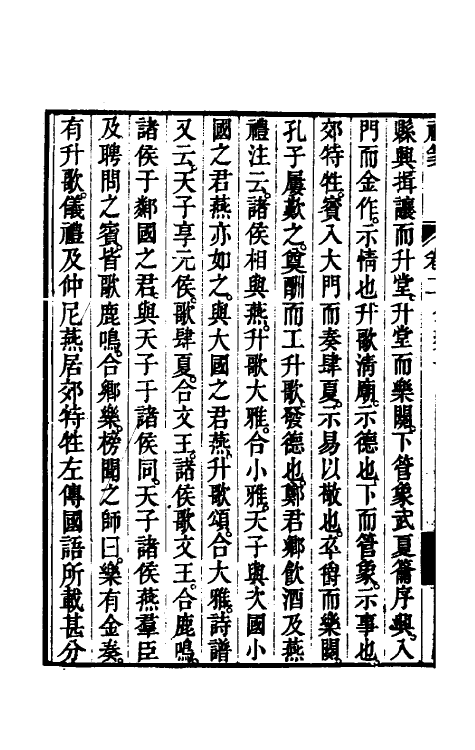 縣興揖讓而升堂升堂而樂闋下管象武夏籥序興入
門而金作示情也升歌清廟示德也下而管象示事也
郊特牲賓入大門而奏肆夏示易以敬也卒爵而樂闋
孔子屢歎之奠酬而工升歌發德也鄭君鄉飲酒及燕
禮注云諸侯相與燕升歌大雅合小雅天子與大國小
國之君燕亦如之與大國之君燕升歌頌合大雅詩譜
又云天子享元侯歌肆夏合文王諸侯歌文王合鹿鳴
諸侯于鄰國之君與天子于諸侯同天子諸侯燕羣臣
及聘問之賓皆歌鹿鳴合鄉樂榜聞之師曰樂有金奏
有升歌儀禮及仲尼燕居郊特牲左傳國語所載甚分